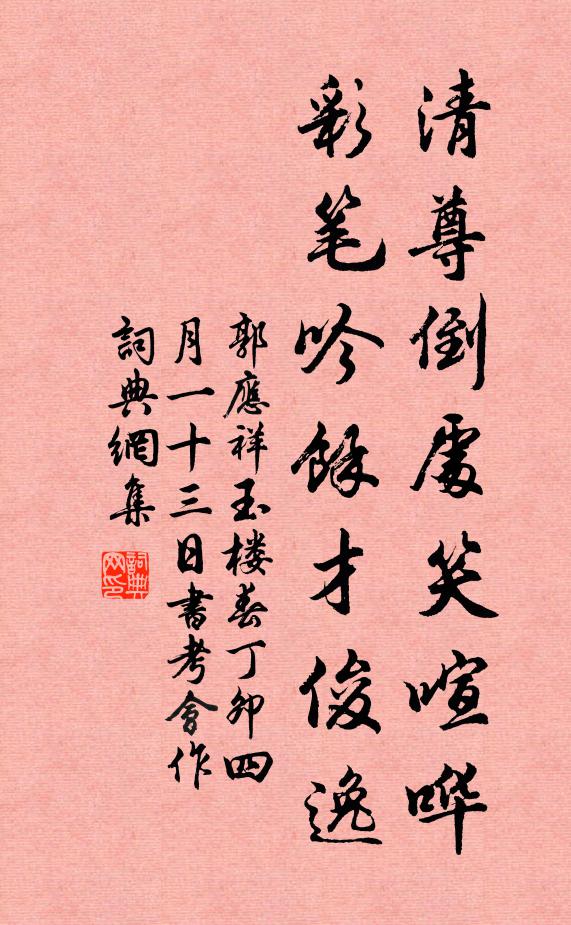 清尊倒處笑喧哗
彩笔吟餘才俊逸
郭應祥玉楼春丁卯四
月一十三日書考會作
詞典網集
詞典网印